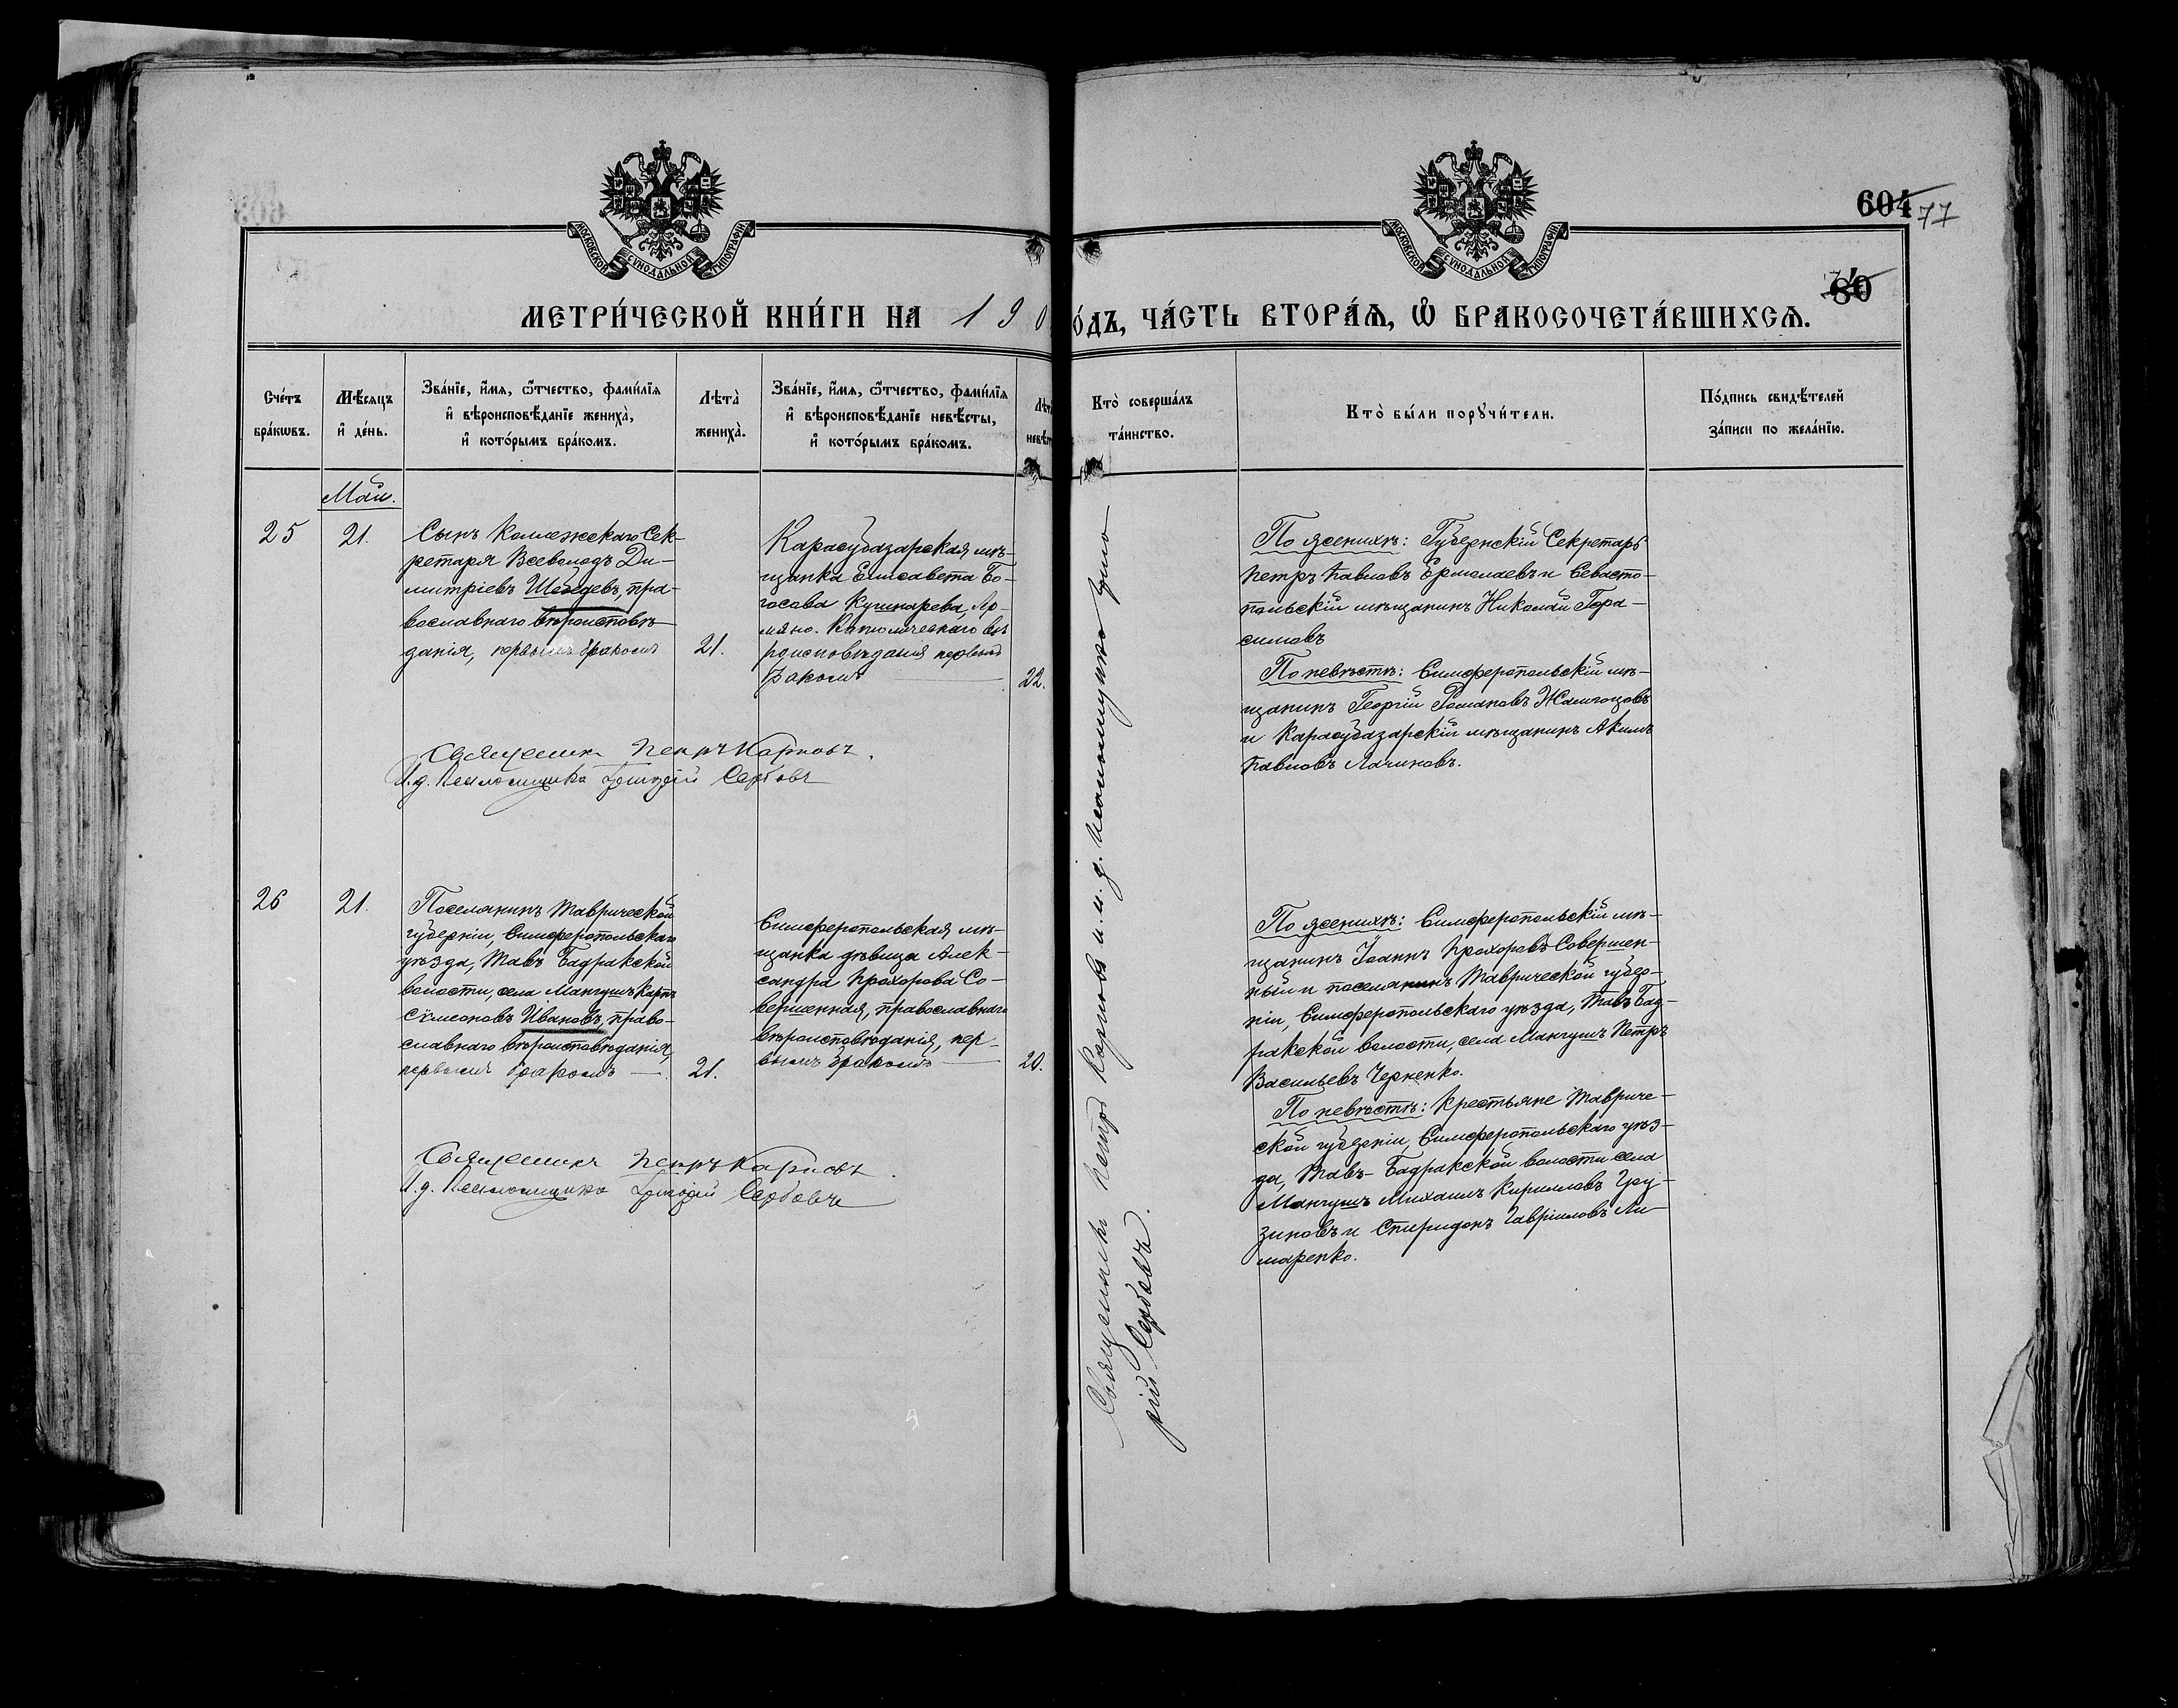 604
77
80
МОСКОВСКОЙ СѴНОДАЛЬНОЙ ТИПОГРАФІИ
МОСКОВСКОЙ СѴНОДАЛЬНОЙ ТИПОГРАФІИ
МЕТРИ́ЧЕСКОЙ КНИ́ГИ НА 190
О́ДЪ, ЧА́СТЬ ВТОРА́Ѧ, Ѡ҆ БРАКОСОЧЕТА́ВШИХСѦ.
Сче́тъ
бра́кѡвъ.
Мѣ́сяцъ
и҆ де́нь.
Зва́нїе, и҆́мѧ, ѻ҆́тчество, фами́лїѧ
и҆ вѣроисповѣ́данїе жениха̀,
и҆ кото́рымъ бра́комъ.
Лѣта̀
жениха̀.
Зва́нїе, и҆́мѧ, ѻ҆́тчество, фами́лїѧ
и҆ вѣроисповѣ́данїе невѣ́сты,
и҆ кото́рымъ бра́комъ.
Лѣт
невѣ́ст
Кто̀ соверша́лъ
та́инство.
Кто̀ бы́ли порꙋчи́тели.
По́дпись свидѣ́телей
за́писи по жела́нїю.
Май.
25
21.
Сынъ Коллежскаго Сек-
ретаря Всеволодъ Ди-
митріевъ Шебедевъ, пра-
вославнаго вѣроисповѣ-
данія, первымъ бракомъ
21.
Карасубазарская мѣ-
щанка Елисавета Бо-
госава Кушнарева, Ар-
мяно-Католическаго вѣ
роисповѣданія первымъ
бракомъ
22.
Священникъ Петръ Карповъ.
И.д. Псаломщика Григорій Сербовъ
По женихѣ: Губернскій Секретарь
Петръ Павловъ Ермолаевъ и Севасто-
польскій мѣщанинъ Николай Гера-
симовъ
По невѣстѣ: Симферопольскій мѣ-
щанинъ Георгій Романовъ Жамгоцовъ
и Карасубазарскій мѣщанинъ Акимъ
Павловъ Лачиновъ.
26
21.
Поселянинъ Таврической
губерніи, Симферопольскаго
уѣзда, Тавъ Бадракской
волости, села Мангушъ Карпъ
Сѵмеоновъ Ивановъ, право-
славнаго вѣроисповѣданія,
первымъ бракомъ
21.
Симферопольская мѣ-
щанка дѣвица Алек-
сандра Прохорова Со-
вершенная, православнаго
вѣроисповѣданія, пер-
вымъ бракомъ
20.
Священникъ Петръ Карповъ.
И.д. Псаломщика Григорій Сербовъ
Священникъ Петръ Карповъ и и.д. Псаломщика Григо
рій Сербовъ.
По женихѣ: Симферопольскій мѣ-
щанинъ Іоаннъ Прохоровъ Совершен-
ный и поселянинъ Таврической губер-
ніи, Симферопольскаго уѣзда, Тавъ Бад-
ракской волости, села Мангушъ Петръ
Васильевъ Черненко.
По невѣстѣ: Крестьяне Тавриче-
ской губерніи, Симферопольскаго уѣз-
да, Тавъ-Бадракской волости села
Мангушъ Михаилъ Кирилловъ Гру-
зиновъ и Спиридонъ Гавріиловъ Ли-
маренко.